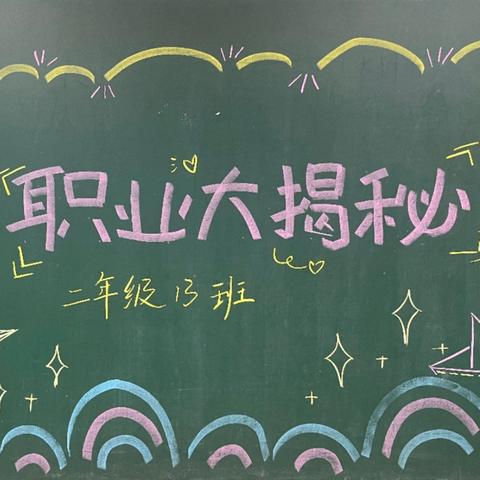 职业大揭秘
二年级13班